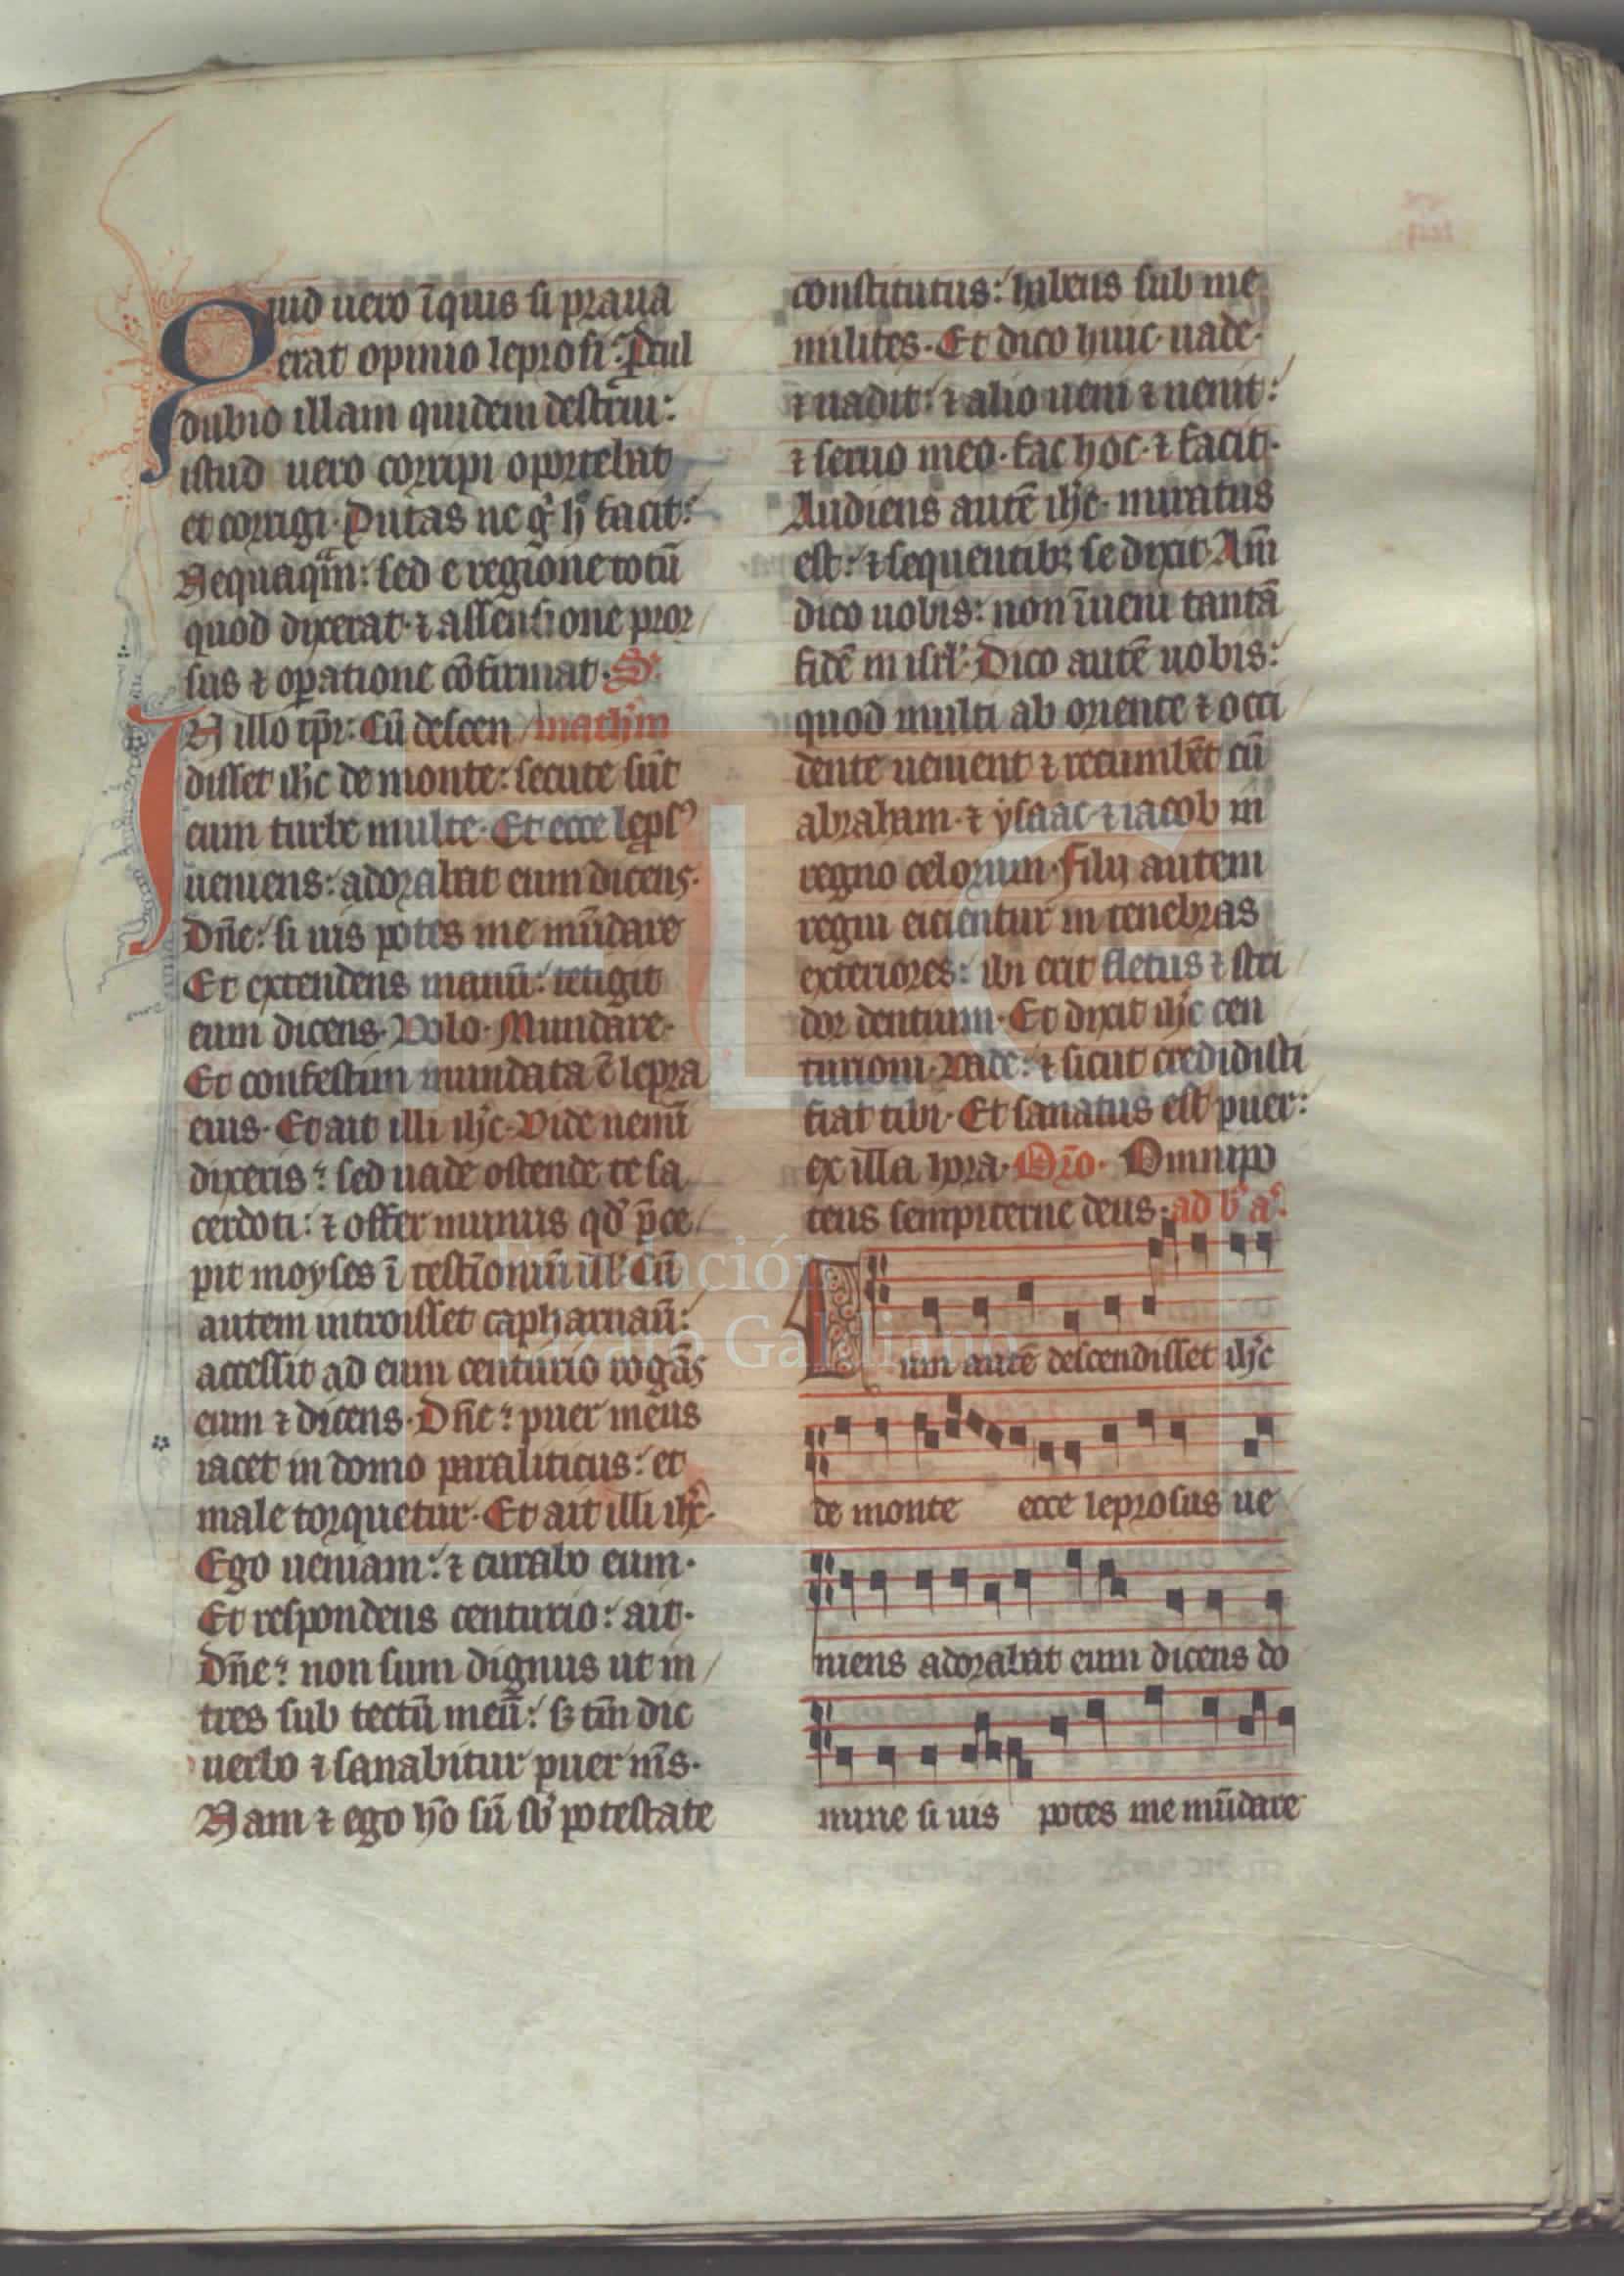 Quid uero īquis si praua
erat opinio leprosi: Procul
dubio illam quidem destrui:
istud uero corripi oportebat
et corrigi. Putas ne gͦ h̄ facit:
Nequaqᵃm: sed e regione totū
quod dixerat ⁊ assensione pror
sus ⁊ opatione cōfirmat. S.
IN illo tp̄r: Cū descen math'm
disset ih̄c de monte: secute sūt
eum turbe multe. Et ecce lepsꝰ
ueniens: adorabat eum dicens.
Dn̄e: si uis potes me mūdare
Et extendens manū: tetigit
eum dicens. Volo. Mundare.
Et confestim mundata ē lepra
eius. Et ait illi ih̄c. Vide nemī
dixeris: sed uade ostende te sa
cerdoti: ⁊ offer munus qd̄ p̄ce
pit moyses ī testīoniū ill'. Cū
autem introisset capharnaū:
accessit ad eum centurio rogās
eum ⁊ dicens. Dn̄e: puer meus
iacet in domo paraliticus: et
male torquetur. Et ait illi ih̄c.
Ego ueniam: ⁊ curabo eum.
Et respondens centurio: ait.
Dn̄e: non sum dignus ut in
tres sub tectū meū: sꝫ tm̄ dic
uerbo ⁊ sanabitur puer m̄s.
Nam ⁊ ego hō sū sb' potestate
constitutus: habens sub me
milites. Et dico huic. uade.
⁊ uadit: ⁊ alio ueni ⁊ uenit:
⁊ seruo meo. fac hoc. ⁊ facit.
Audiens autē ih̄c. miratus
est: ⁊ sequentibꝫ se dixit. Am̄
dico uobis: non īueni tantā
fidē in isrl'. Dico autē uobis:
quod multi ab oriente ⁊ occi
dente uenient ⁊ recumbēt cū
abraham. ⁊ ysaac. ⁊ iacob in
regno celorum. Filij autem
regni eicientur in tenebras
exteriores: ibi erit fletus ⁊ stri
dor dentium. Et dixit ih̄c cen
turioni. Vade: ⁊ sicut credidisti
fiat tibi. Et sanatus est puer:
ex illa hora. Or̄o. Omnipo
tens sempiterne deus. ad b' a.
Cum autē descendisset ih̄c
de monte ecce leprosus ue
niens adorabat eum dicens do
mine si uis potes me mūdare
FLG
Fundación
Lázaro Galdiano